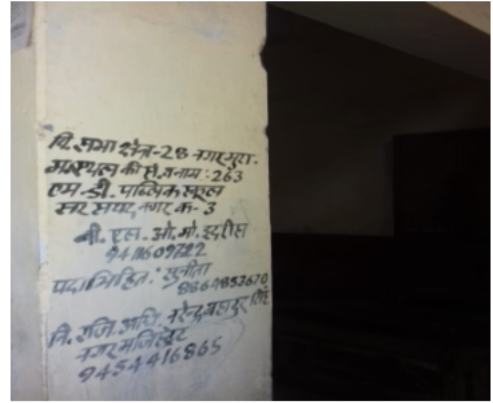 वि. सभा क्षेत्र-28 नगर मुरा.
मतस्थल की सं. व नाम : 263
एम. डी. पब्लिक स्कूल
सर सय्यद नगर क- 3
बी. एल. ओ. मो. इदरीस
9411609722
पदाभिहित : सुनीता
8864853670
नि. रजि. अधि. नरेन्द्र बहादुर सिंह
नगर मजिस्ट्रेट
9454416865